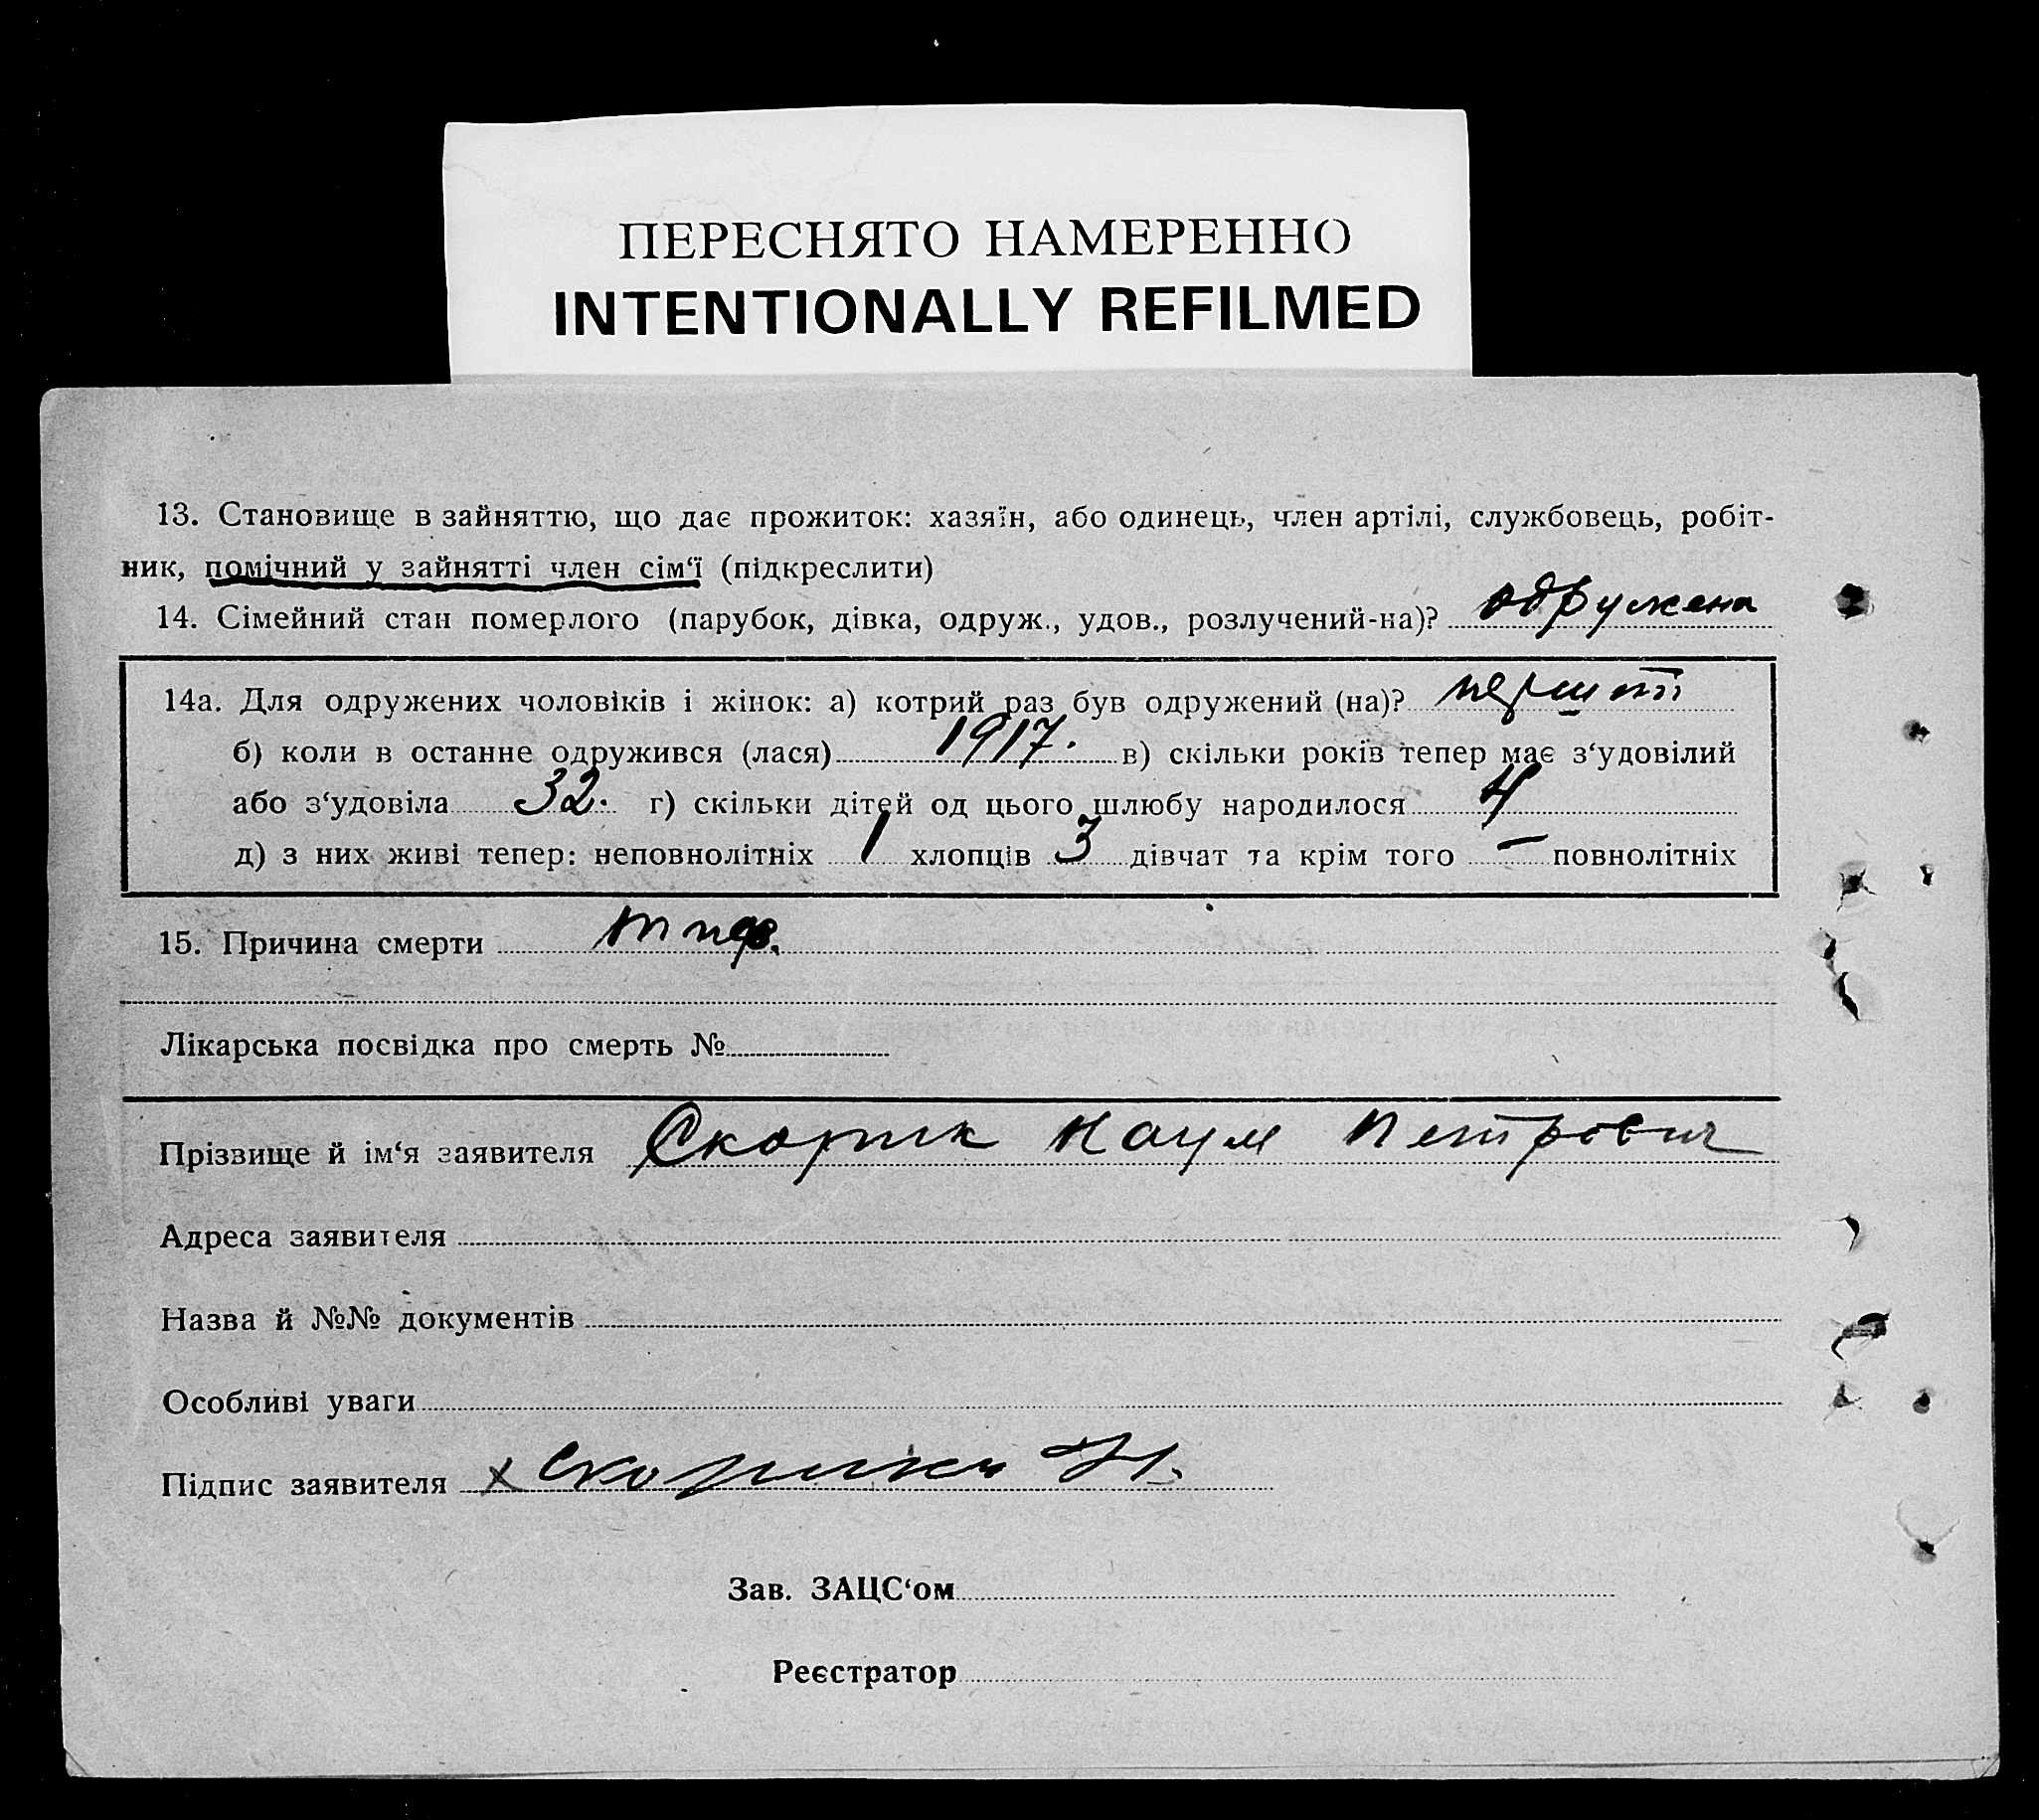 ПЕРЕСНЯТО НАМЕРЕННО
INTENTIONALLY REFILMED
13. Становище в зайняттю, що дає прожиток: хазяїн, або одинець, член артілі, службовець, робіт-
ник, помічний у зайнятті член сім‘ї (підкреслити)
14. Сімейний стан померлого (парубок, дівка, одруж., удов., розлучений-на)? одружена
14а. Для одружених чоловіків і жінок: а) котрий раз був одружений (на)? перший
б) коли в останне одружився (лася) 1917. в) скільки років тепер має з‘удовілий
або з‘удовіла 32. г) скільки дітей од цього шлюбу народилося 4
д) з них живі тепер: неповнолітніх 1 хлопців 3 дівчат та крім того — повнолітніх
15. Причина смерти тиф.
Лікарська посвідка про смерть №
Прізвище й ім‘я заявителя Скорик Наум Петрович
Адреса заявителя
Назва й №№ документів
Особливі уваги
Підпис заявителя х
Зав. ЗАЦС‘ом
Реєстратор